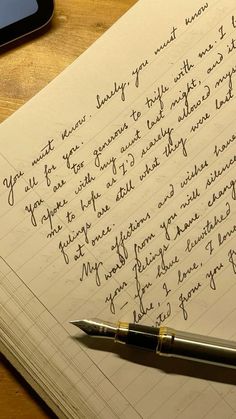 You must know. Surely you must know
all for you.
You are too generous to trifle with me. I
spoke with my aunt last night, and it
me to hope as I'd scarcely allowed mys
feelings are still what they were last
at once.
My affections and wishes have
word from you will silence
your feelings have chang
you have bewitched
love, I love, I lov
ted from you f